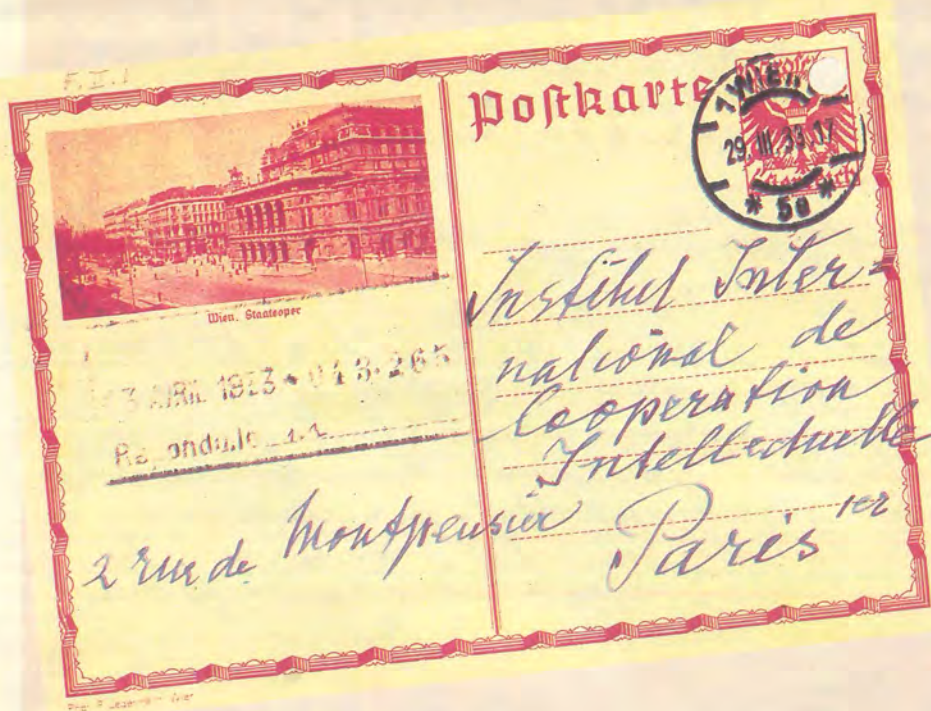 F. II. 1
Postkarte
1 WIEN
29. III. 33. 17
* 50 *
Wien. Staatsoper
3 AVRIL 1933 * 013.265
Répondu le
Institut Inter=
national de
Cooperation
Intellectuelle
2 rue de Montpensier
Paris 1er